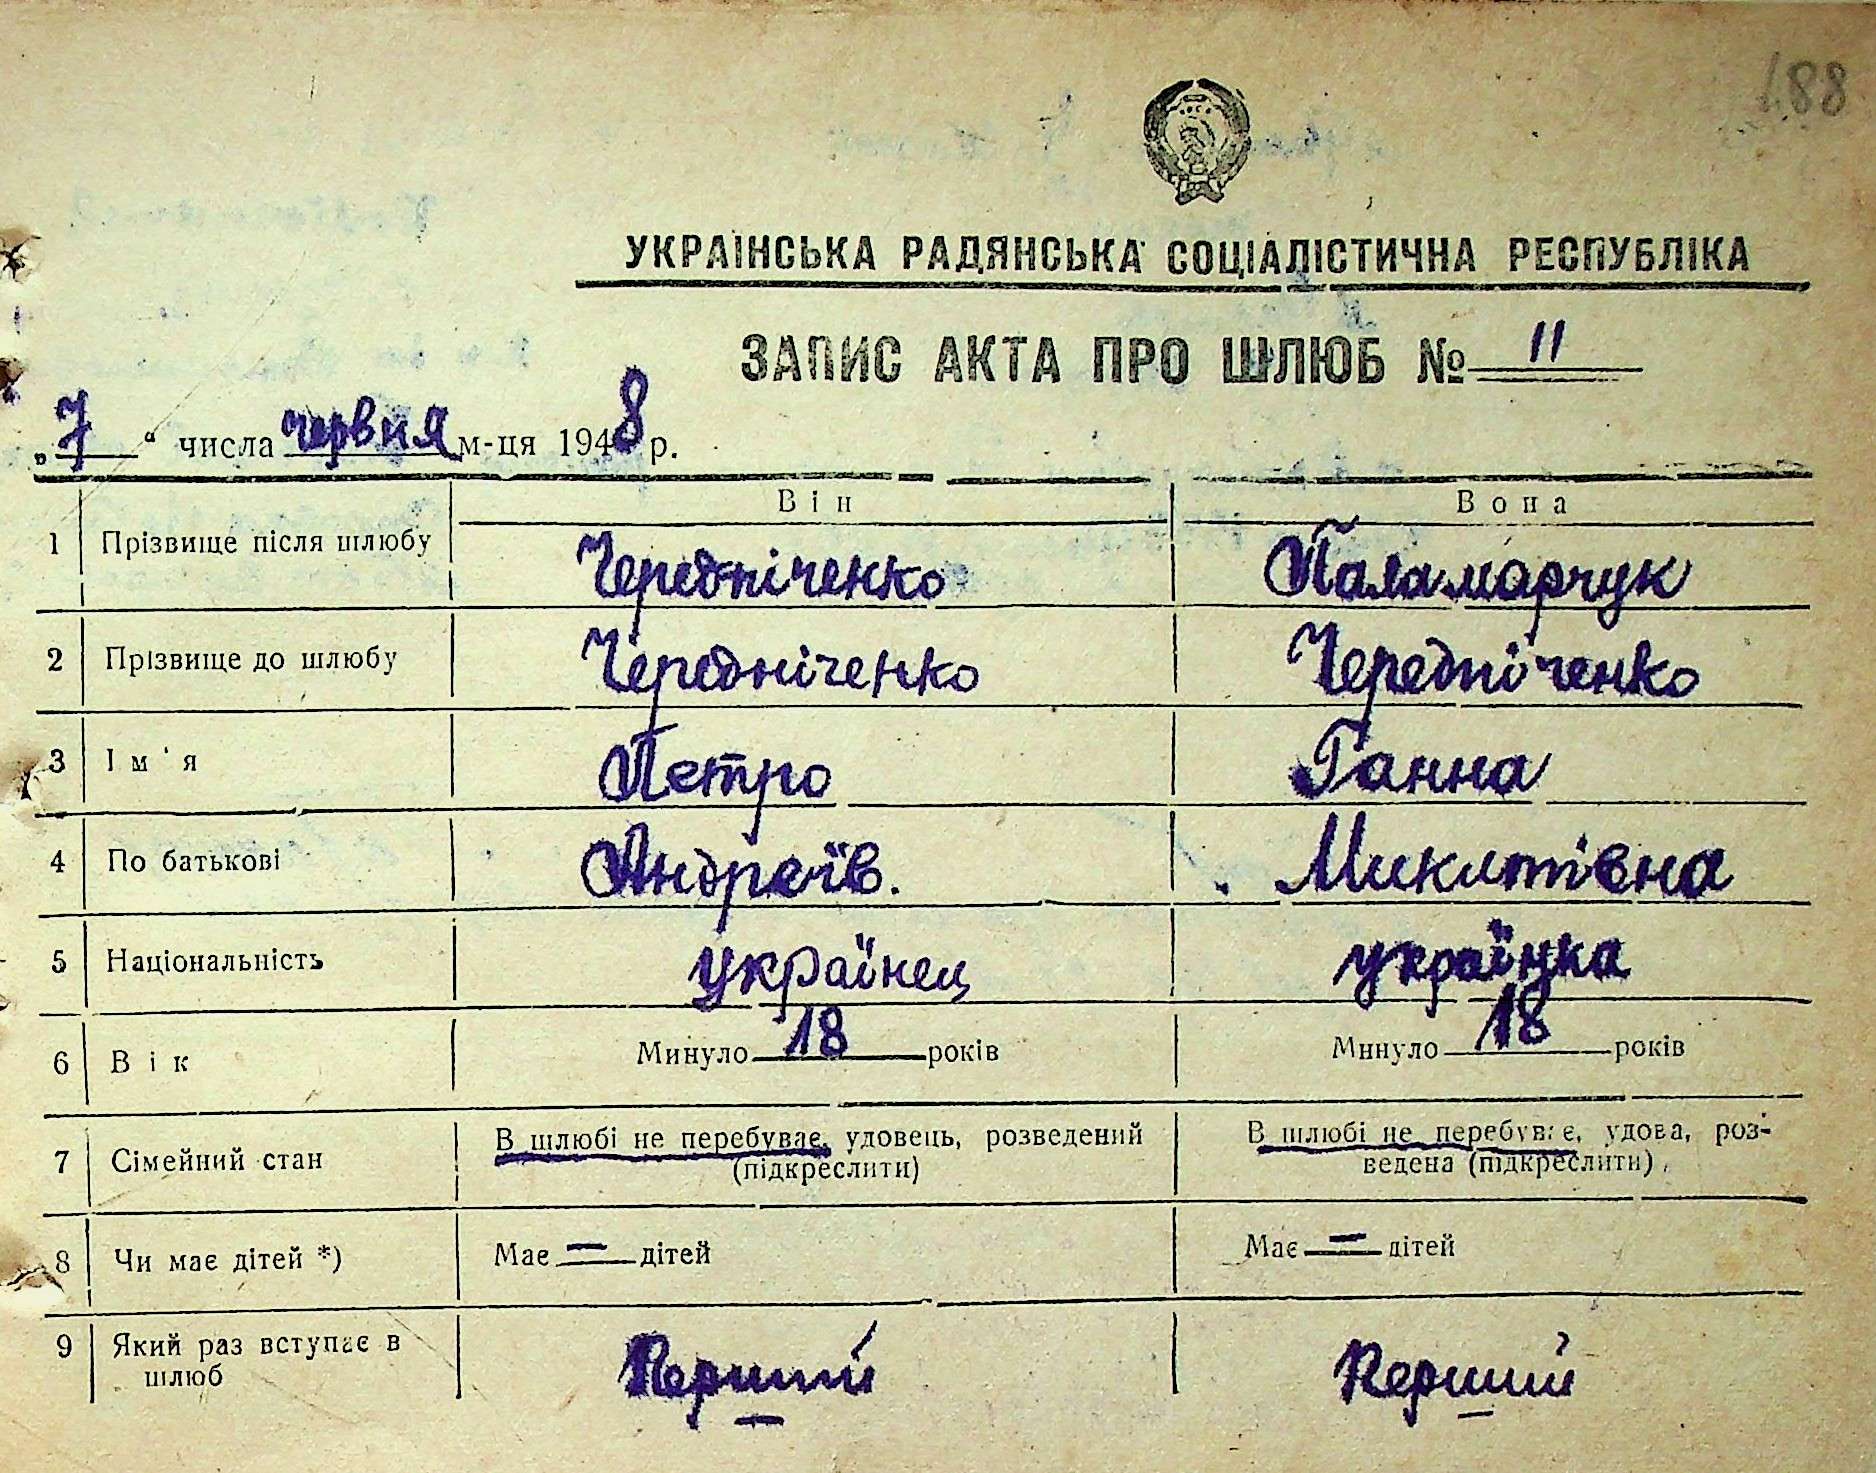 188
УКРАЇНСЬКА РАДЯНСЬКА СОЦІАЛІСТИЧНА РЕСПУБЛІКА
ЗАПИС АКТА ПРО ШЛЮБ № 11
„7“ числа червня м-ця 1948 р.
Він Вона
1 Прізвище після шлюбу Чередніченко Паламарчук
2 Прізвище до шлюбу Чередніченко Чередніченко
3 Ім'я Петро Ганна
4 По батькові Андреїв. Микитівна
5 Національність українец українка
6 Вік Минуло 18 років Минуло 18 років
7 Сімейний стан В шлюбі не перебуває, удовець, розведений (підкреслити) В шлюбі не перебуває, удова, роз-
ведена (підкреслити)
8 Чи має дітей *) Має — дітей Має — дітей
9 Який раз вступає в шлюб Перший Перший